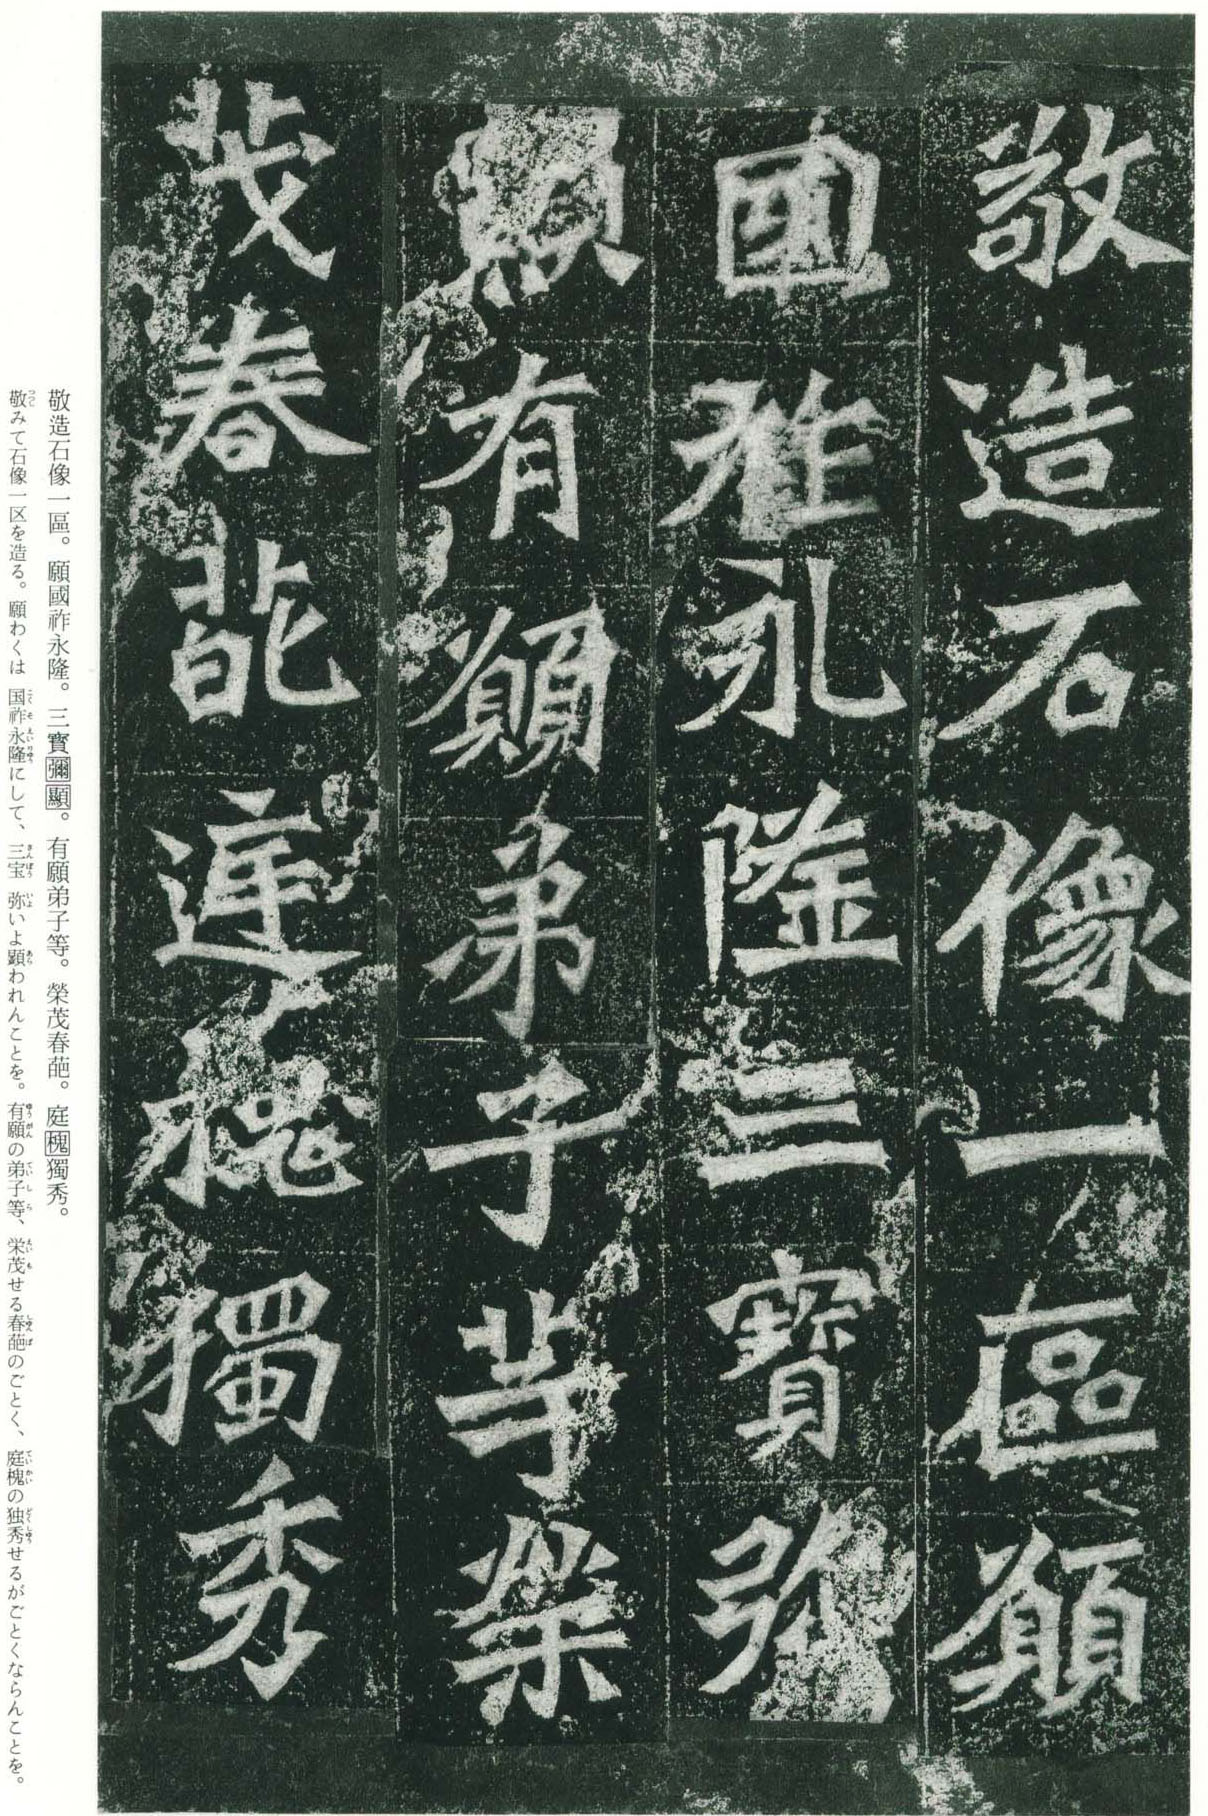 敬造石像一區願
國祚永隆三寶彌
顯有願弟子等榮
茂春葩庭槐獨秀
敬造石像一區。願國祚永隆。三寳彌顯。有願弟子等。榮茂春葩。庭槐獨秀。
敬みて石像一区を造る。願わくは国祚永隆にして、三宝弥いよ顕われんことを。有願の弟子等、栄茂せる春葩のごとく、庭槐の独秀せるがごとくならんことを。